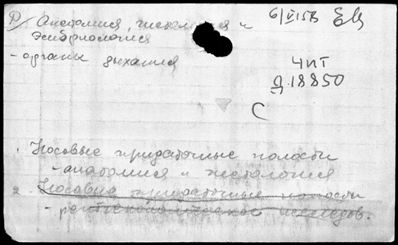 Р) Анатомия, гистология и
эмбриология
- органы дыхания
6/VI 58
ЧИТ
Д 18850
С
1. Носовые придаточные полости
- анатомия и гистология
2. Носовые придаточные полости
- рентгенологическое исследов.